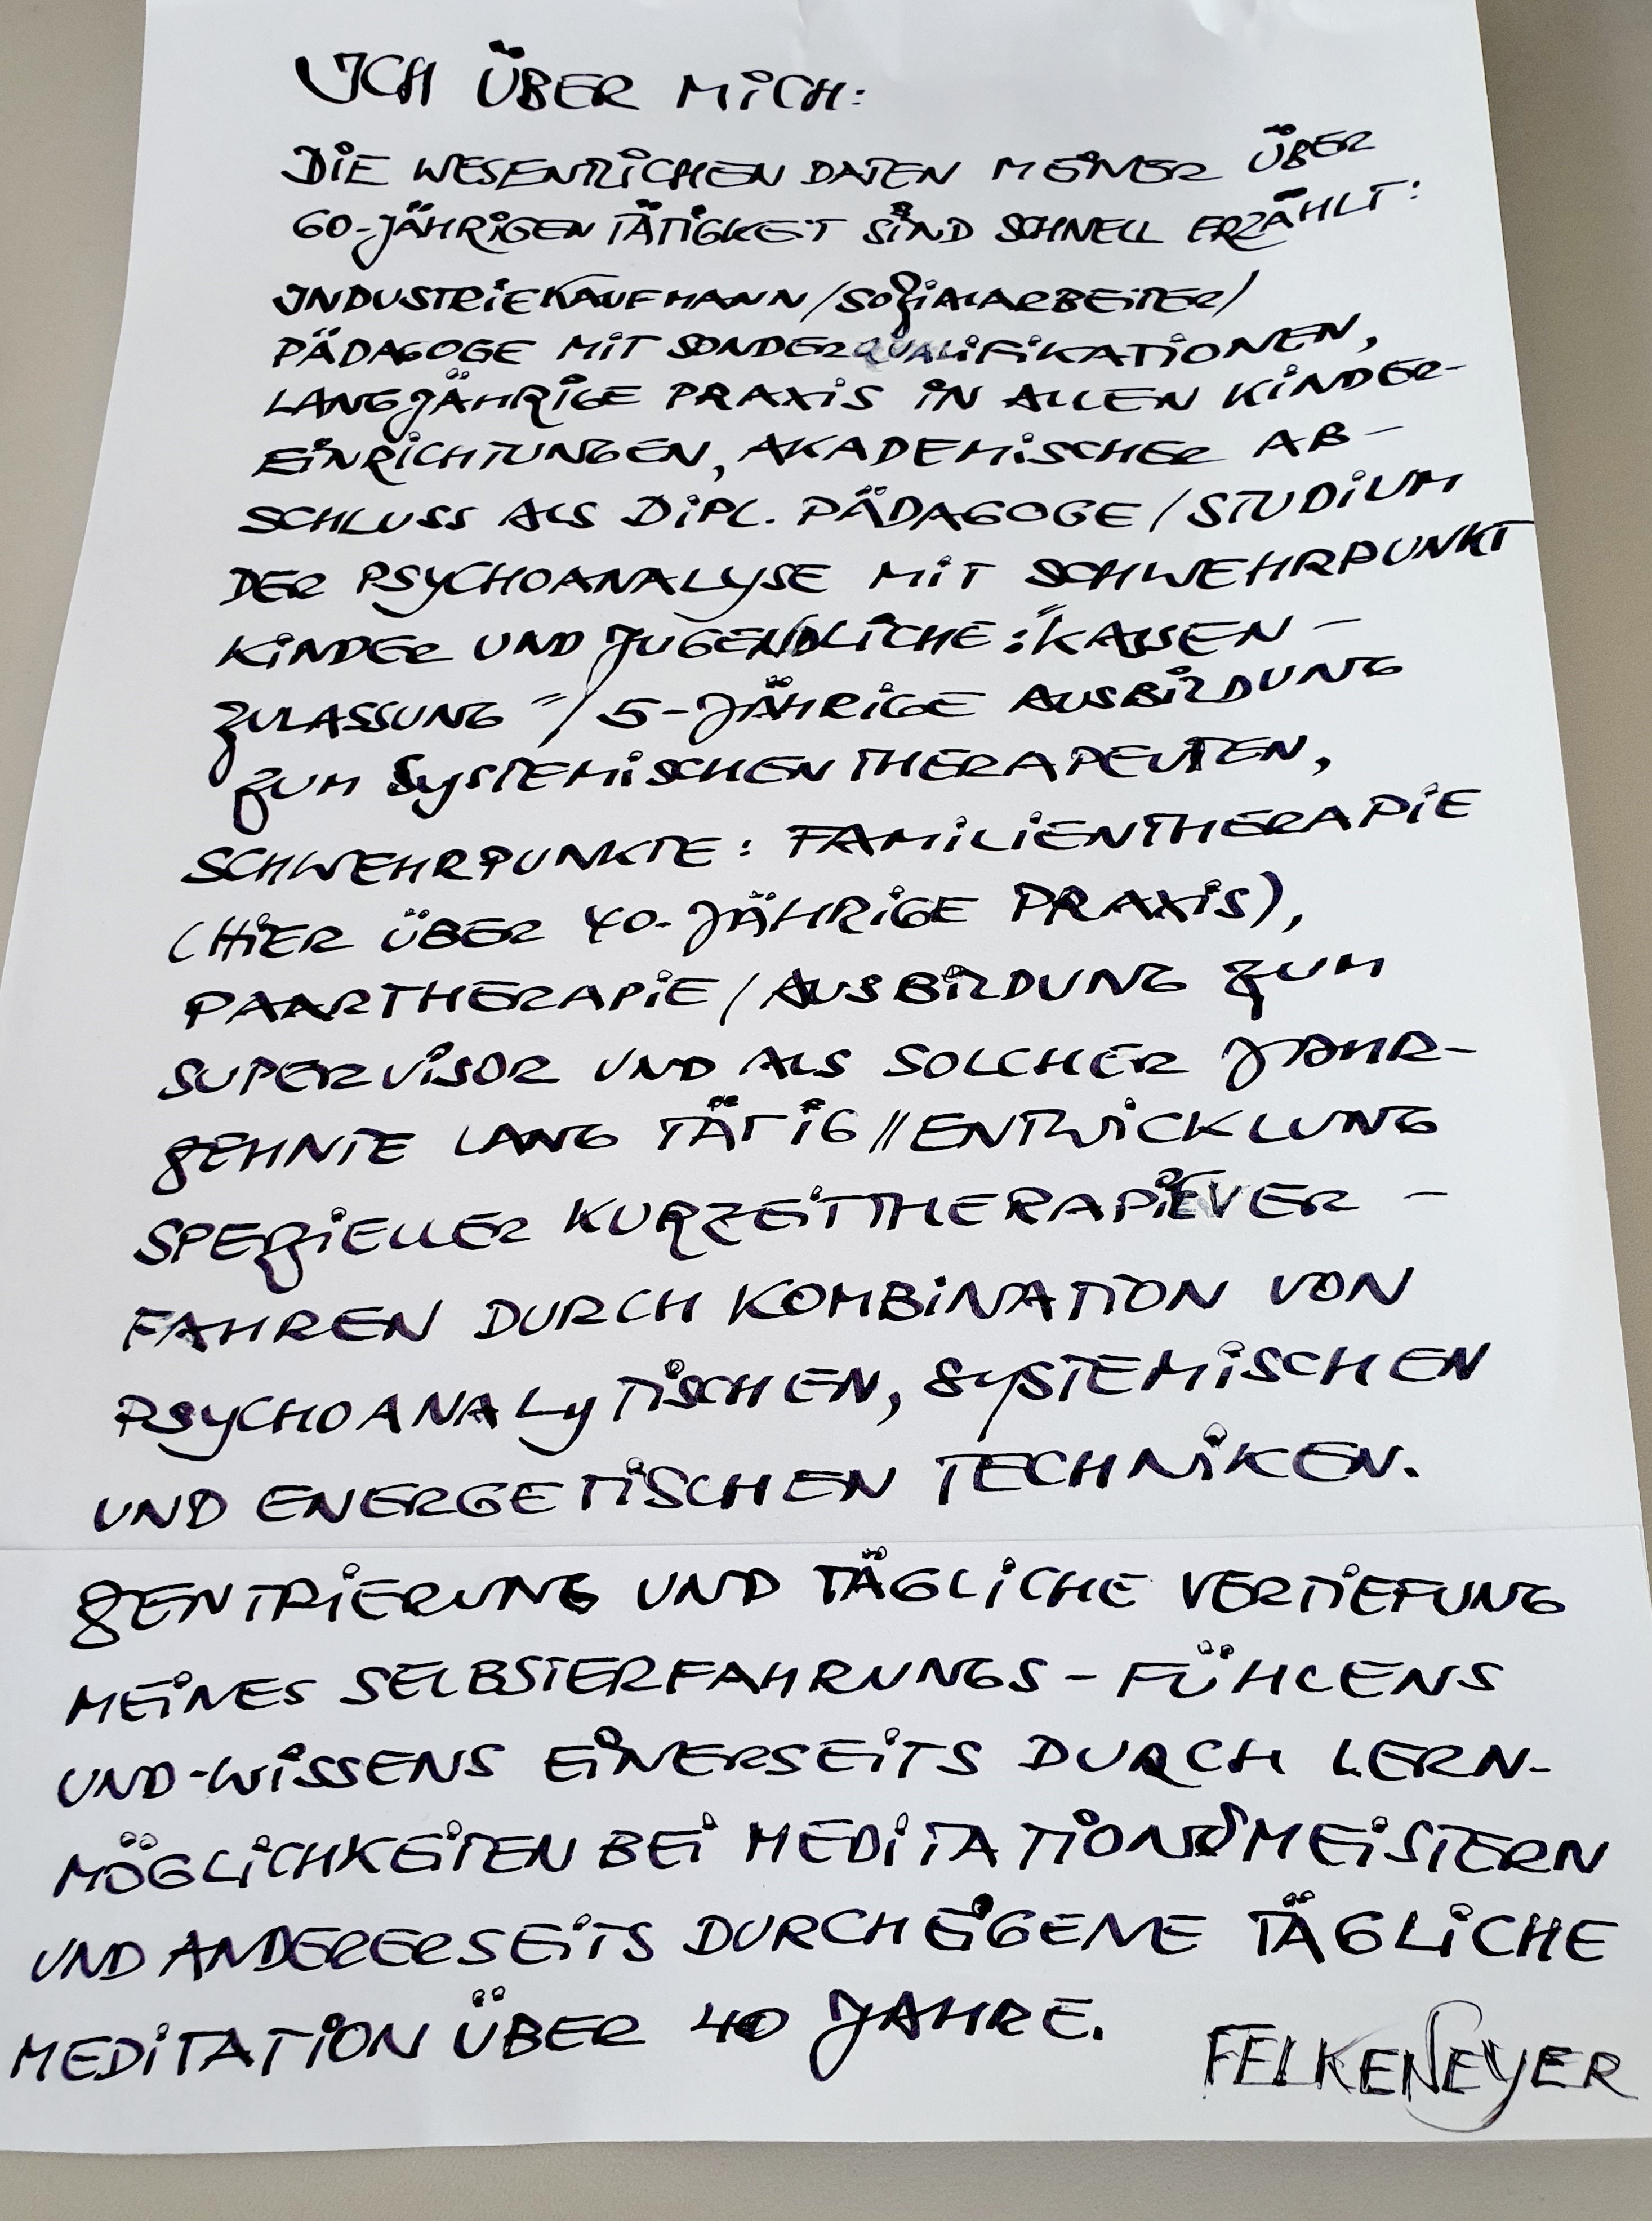 ICH ÜBER MICH:
DIE WESENTLICHEN DATEN MEINER ÜBER
60-JÄHRIGEN TÄTIGKEIT SIND SCHNELL ERZÄHLT:
INDUSTRIEKAUFMANN/SOZIALARBEITER/
PÄDAGOGE MIT SONDERQUALIFIKATIONEN,
LANGJÄHRIGE PRAXIS IN ALLEN KINDER-
EINRICHTUNGEN, AKADEMISCHER AB-
SCHLUSS ALS DIPL. PÄDAGOGE/STUDIUM
DER PSYCHOANALYSE MIT SCHWEHRPUNKT
KINDER UND JUGENDLICHE: "KASSEN-
ZULASSUNG"/5-JÄHRIGE AUSBILDUNG
ZUM SYSTEMISCHEN THERAPEUTEN,
SCHWEHRPUNKTE: FAMILIENTHERAPIE
(HIER ÜBER 40-JÄHRIGE PRAXIS),
PAARTHERAPIE/AUSBILDUNG ZUM
SUPERVISOR UND ALS SOLCHER JAHR-
ZEHNTE LANG TÄTIG//ENTWICKLUNG
SPEZIELLER KURZZEITTHERAPIEVER-
FAHREN DURCH KOMBINATION VON
PSYCHOANALYTISCHEN, SYSTEMISCHEN
UND ENERGETISCHEN TECHNIKEN.
ZENTRIERUNG UND TÄGLICHE VERTIEFUNG
MEINES SELBSTERFAHRUNGS-FÜHLENS
UND-WISSENS EINERSEITS DURCH LERN-
MÖGLICHKEITEN BEI MEDITATIONSMEISTERN
UND ANDERERSEITS DURCH EIGENE TÄGLICHE
MEDITATION ÜBER 40 JAHRE.